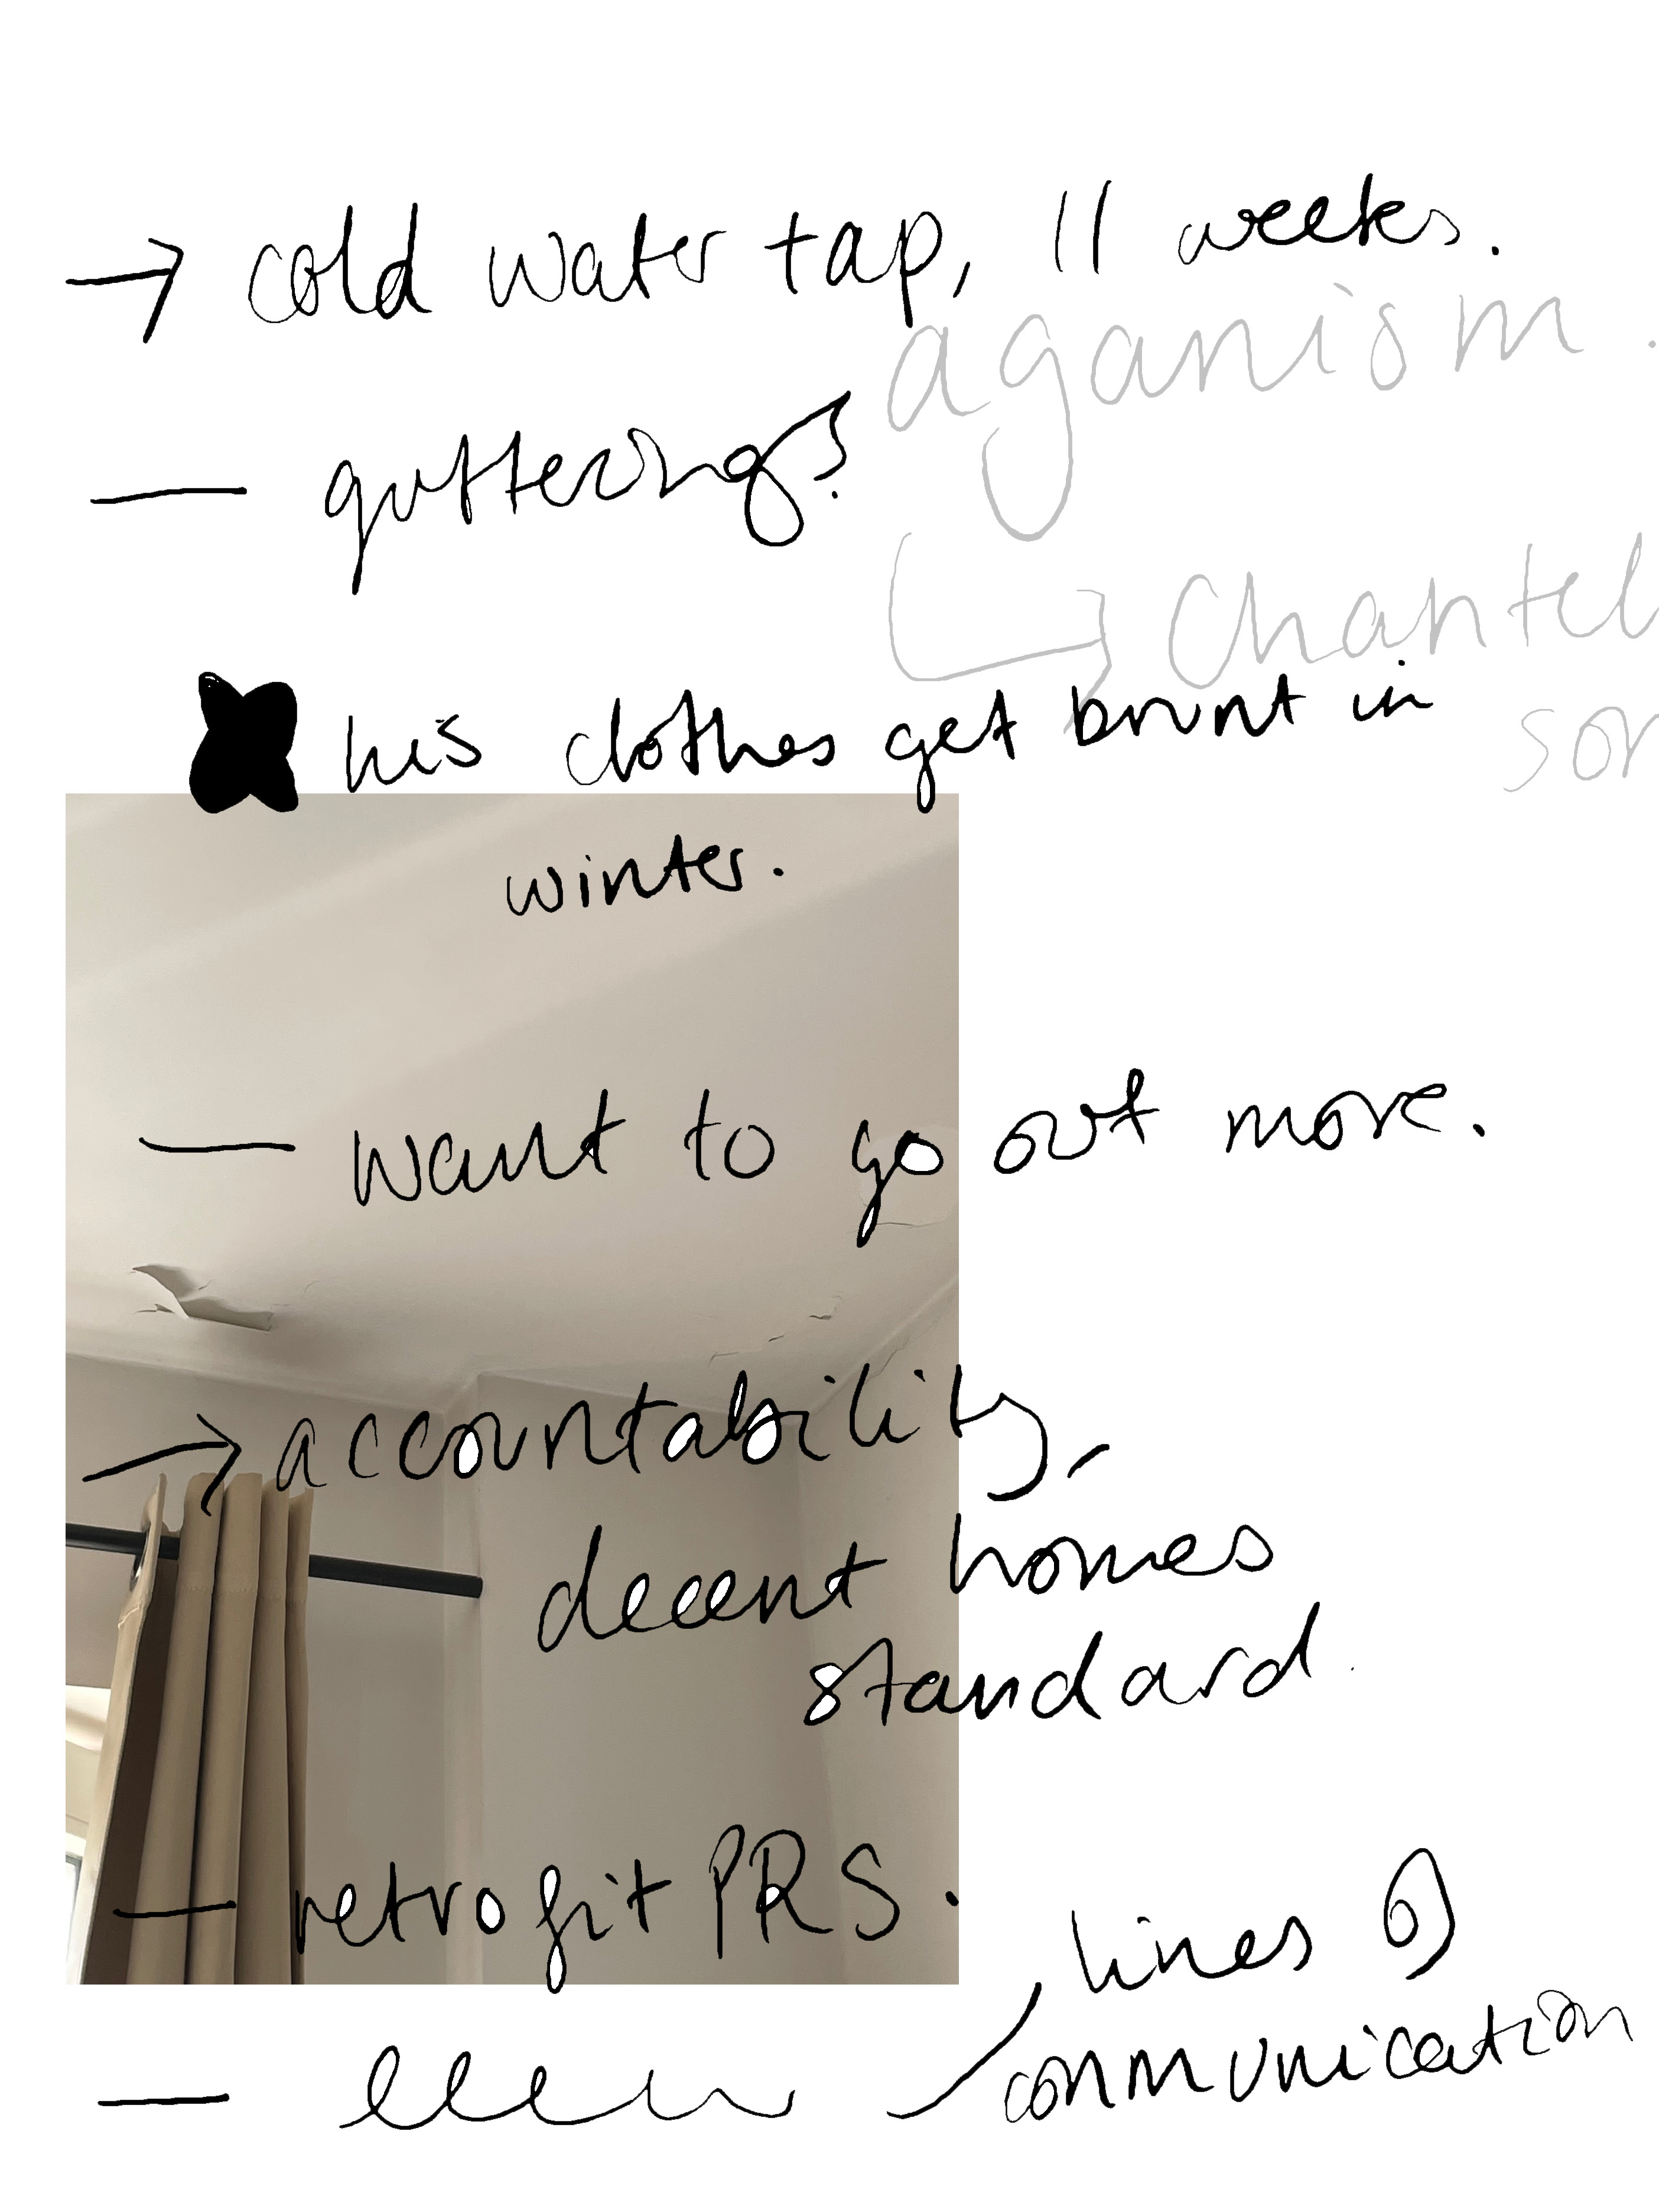 → cold water tap, 11 weeks.
aganism.
— guttering?
↳ Chantel
his clothes get brunt in
winter.
— want to go out more.
→ accountability,
decent homes
standard.
— retrofit PRS.
lines of
communication